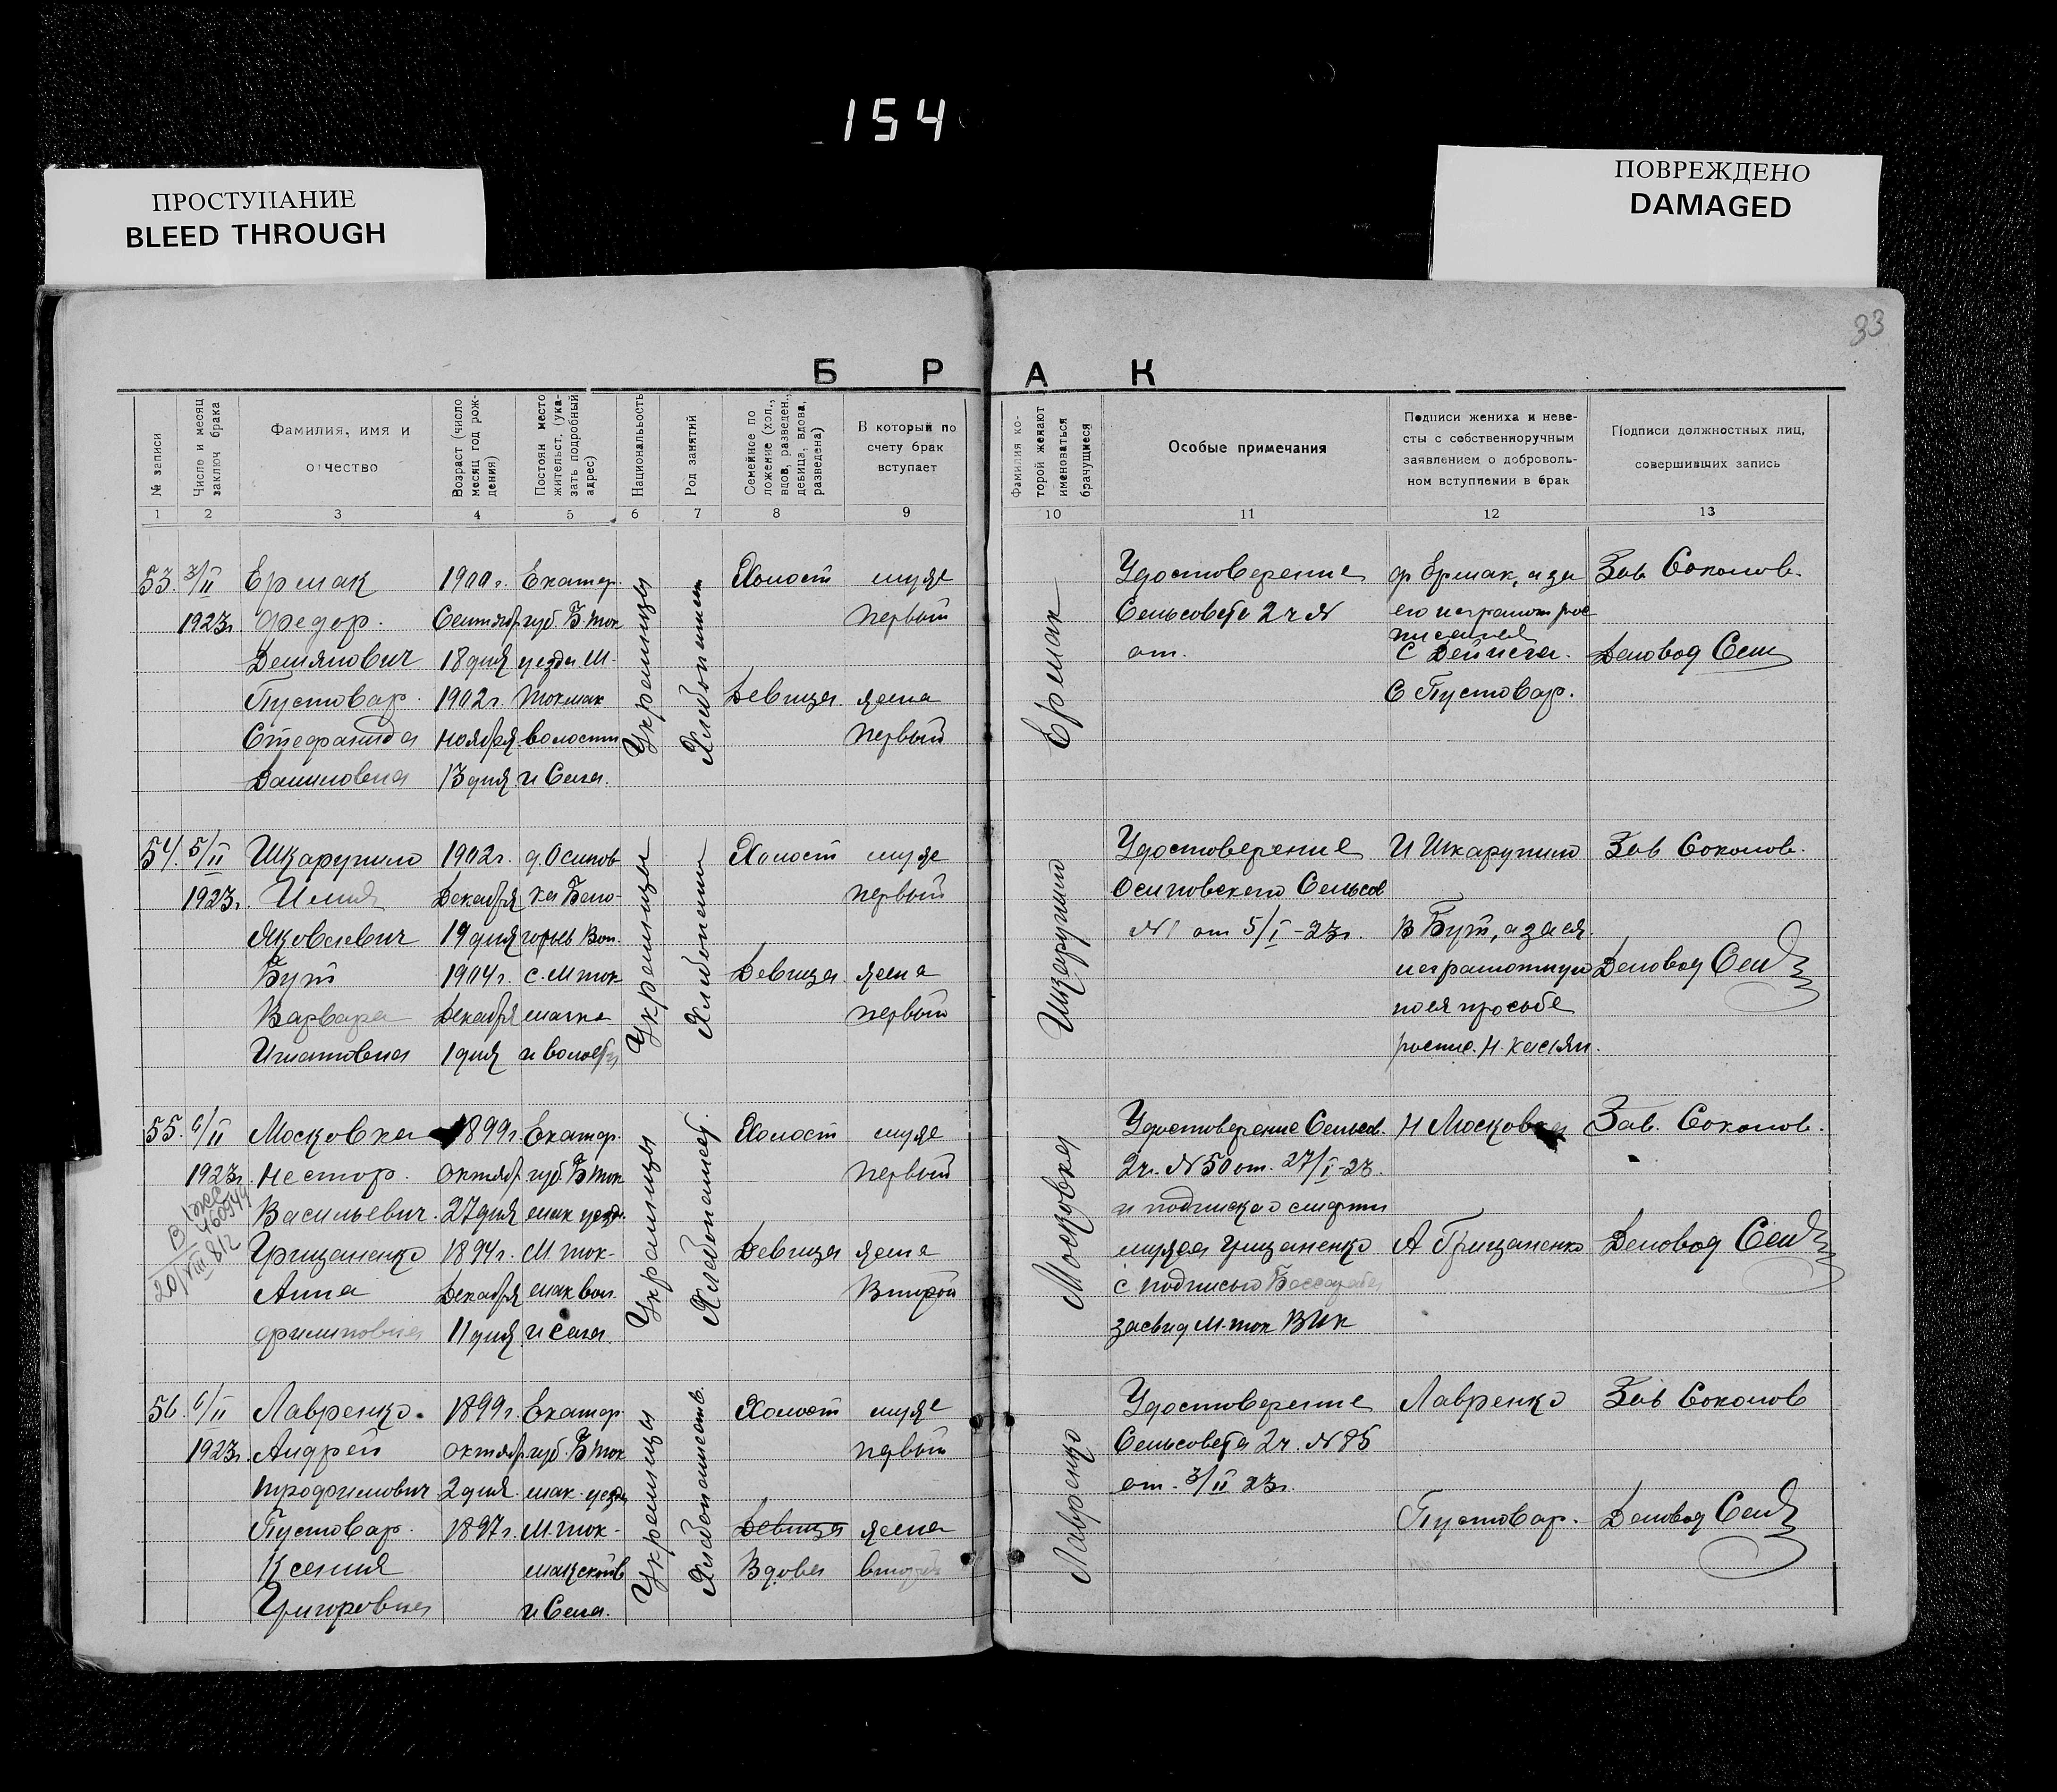 154
ПРОСТУПАНИЕ
BLEED THROUGH
ПОВРЕЖДЕНО
DAMAGED
33
Б Р А К
№ записи
Число и месяц заключ брака
Фамилия, имя и отчество
Возраст (число месяц год рождения)
Постоян место жительст. (указать подробный адрес)
Национальность
Род занятий
Семейное положение (хол., вдов, разведен., девица, вдова, разведена)
В который по счету брак вступает
Фамилия которой желают именоваться брачущиеся
Особые примечания
Подписи жениха и невесты с собственноручным заявлением о добровольном вступлении в брак
Подписи должностных лиц, совершивших запись
1 2 3 4 5 6 7 8 9 10 11 12 13
53. 3/II Ермак 1900г. Екатер. Холост муже Удостоверение ф Ермак, а за Зав Соколов.
1923г. Федор. Сентябр губ Б Ток первый Сельсовета 2ч № его неграмот рос
Демянович 18 дня уезда М. от. писался
С Дейнега. Деловод Сем
Пустовар. 1902г. Токмак Девица жена С Пустовар.
Стефанида ноября волости первый
Даниловна 13 дня и Села.
Украинцы
Ермак
54. 5/II Шкарупило 1902г. д. Осипов Холост муже Удостоверение И Шкарупило Зав Соколов.
1923г. Илия Декабря ка Бело- первый Осиповского Сельсов
Яковлевич 19 дня горьев Вол. № от 5/I-23г. В Бут, а за ея
Бут 1904г. с. М ток- Девица жена неграмотную Деловод Сем
Варвара Декабря мачка первый по ея просьбе
Игнатовна 1 дня и волости роспис. Н. Касьян.
Украинцы
Шкарупило
55. 6/II Московка 1899г. Екатер. Холост муже Удостоверение Сельсов. Н Московка Зав. Соколов.
1923г. Нестор. октябр губ. Б Ток первый 2ч. № 50 от. 27/I-23.
Васильевич. 27 дня мак уезд. и подписка о смерти
Грищаненко 1894г. М. ток- Девица жена мужа Грищаненко А Грищаненко Деловод Сем
Анна Декабря мак вол. Второй с подписью
Филиповна 11 дня и села. засвид М. ток ВИК
Украинцы
Московка
20/VIII 812
56. 6/II Лавренко. 1899г. Екатер Холост муже Удостоверение Лавренко Зав Соколов
1923г. Андрей октябр губ. Б Ток первый Сельсовета 2ч. № 85
Трофимович 2 дня мак. уезда от. 3/II 23г.
Пустовар. 1897г. М. ток- Девица жена Пустовар. Деловод Сем
Ксения макской в Вдова второй
Григоровна и Села.
Украинцы
Лавренко